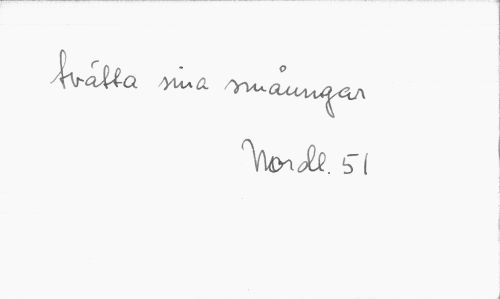 tvätta sina småungar
Nordl. 51